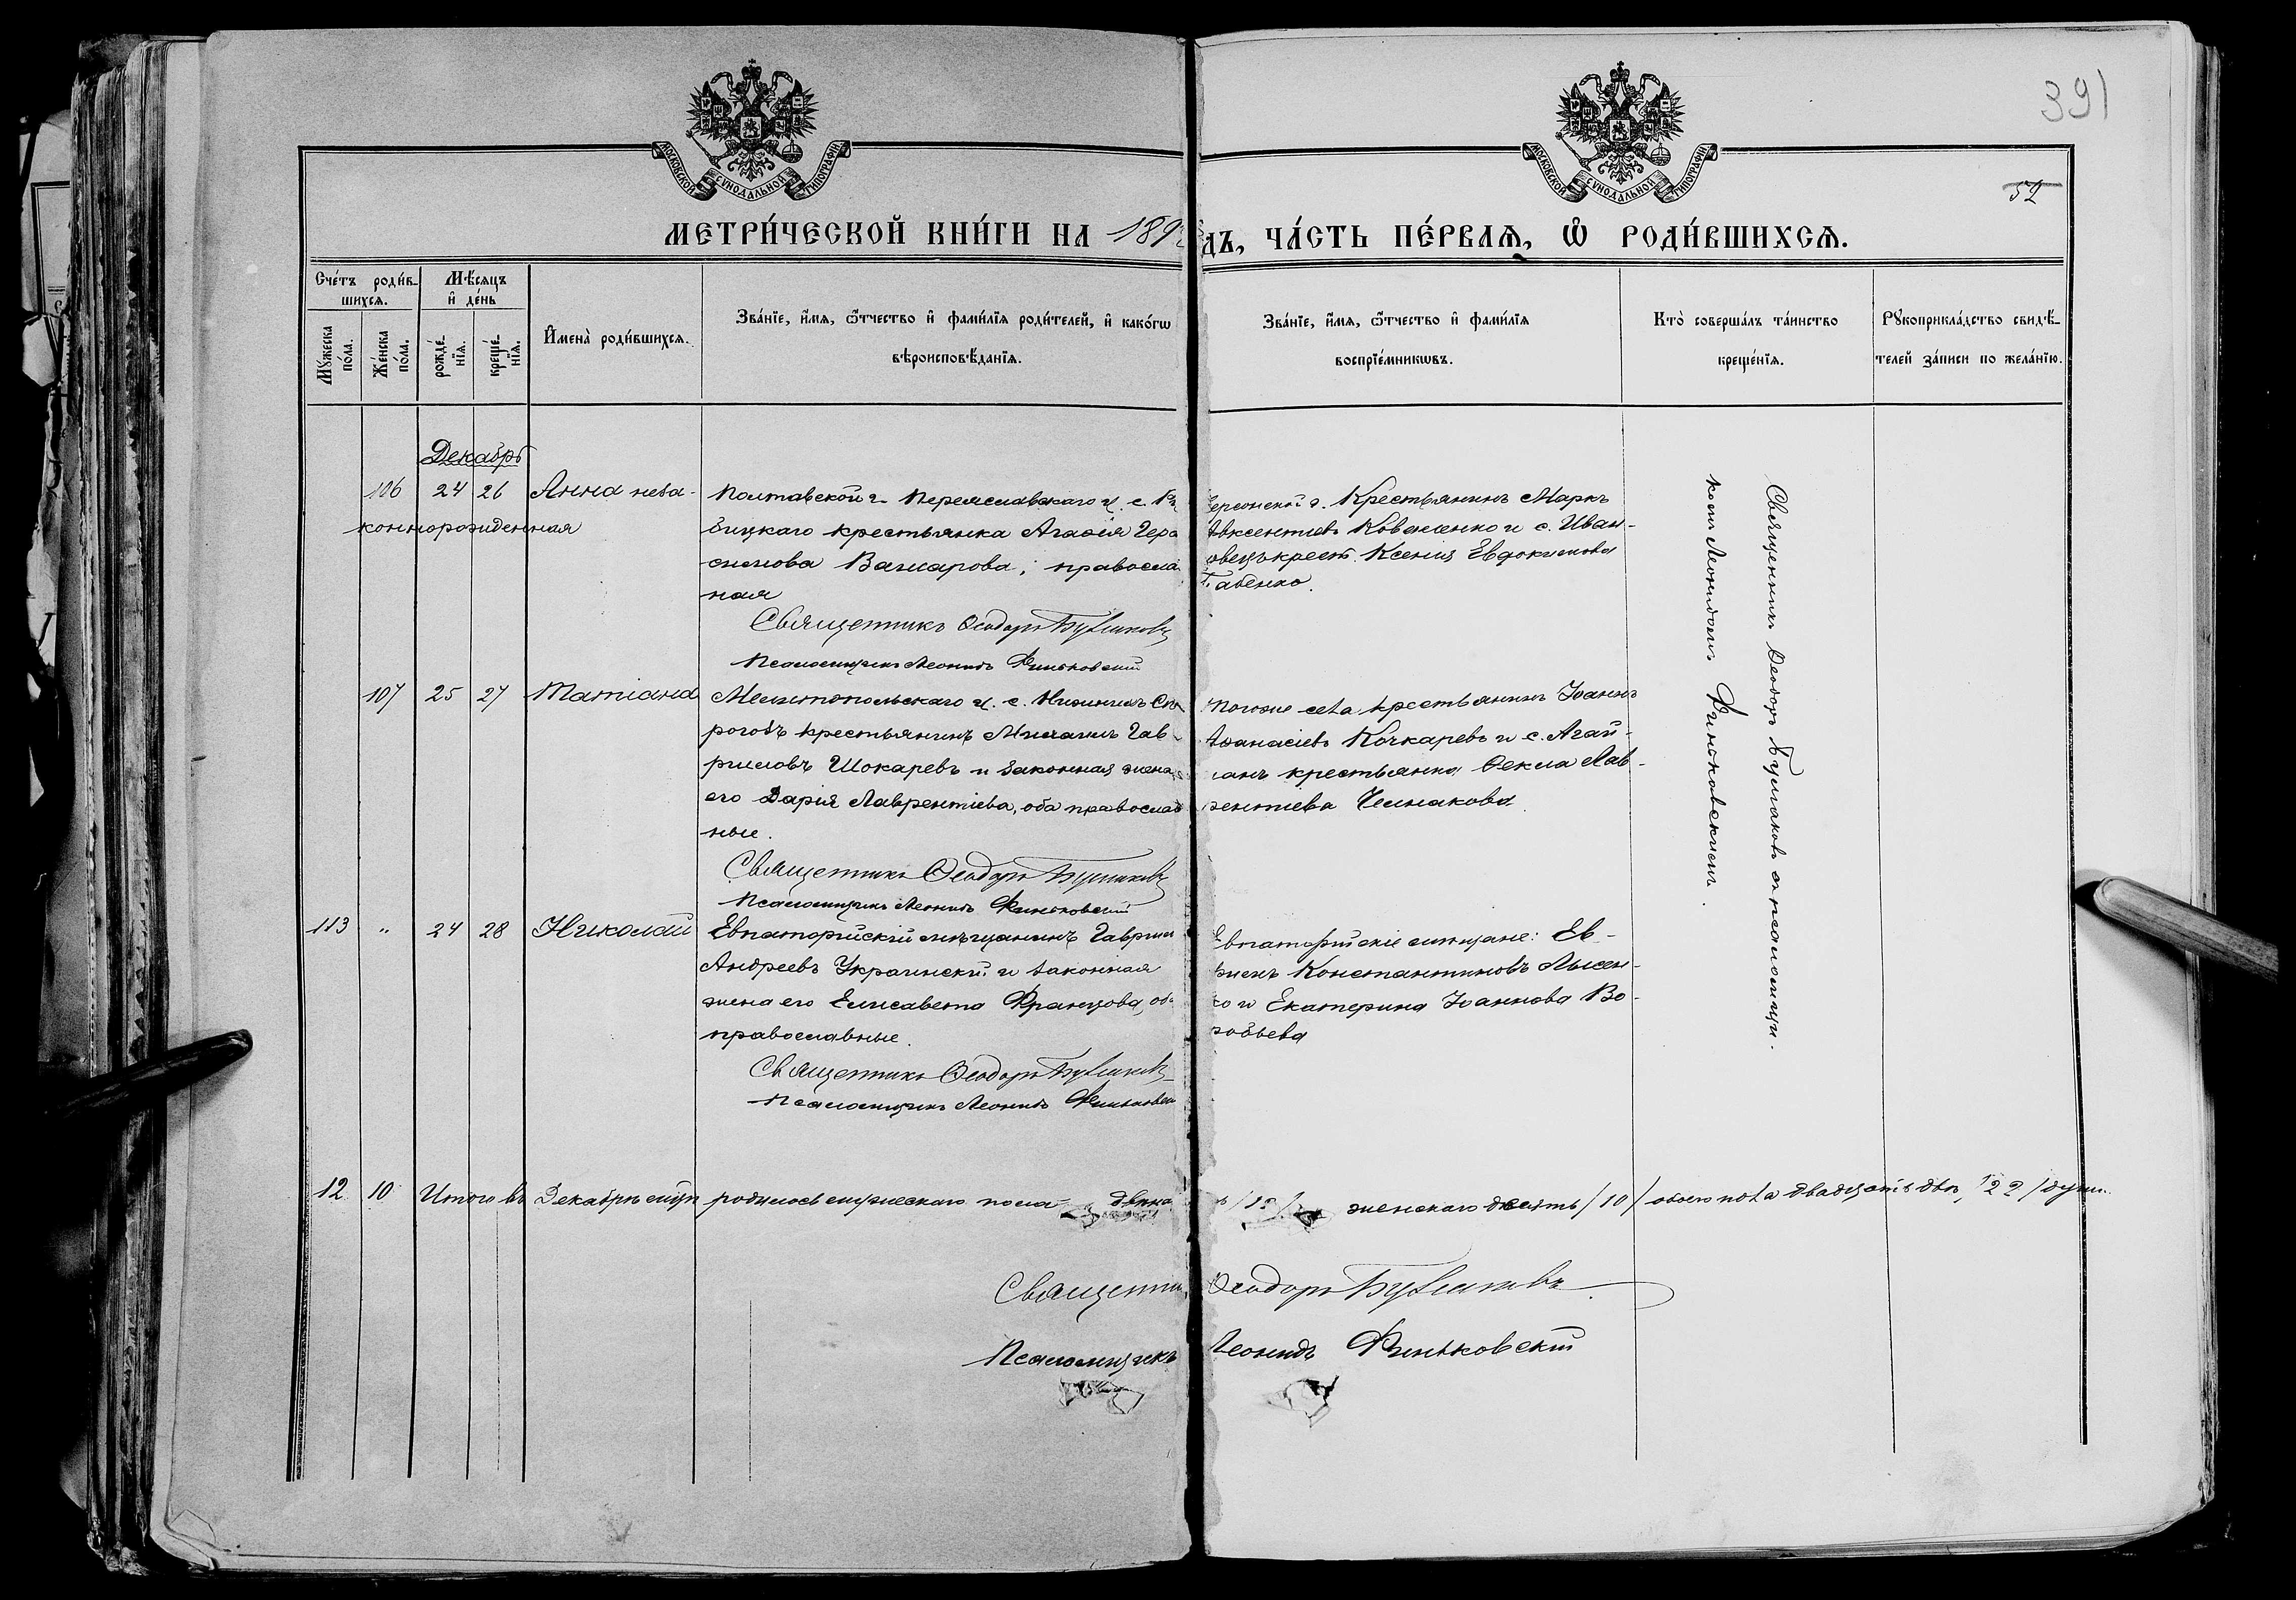 391
52
МОСКОВСКОЙ СѴНОДАЛЬНОЙ ТИПОГРАФІИ
МОСКОВСКОЙ СѴНОДАЛЬНОЙ ТИПОГРАФІИ
МЕТРИ́ЧЕСКОЙ КНИ́ГИ НА 189
ДЪ, ЧА́СТЬ ПЕ́РВАѦ, Ѿ РОДИ́ВШИХСѦ.
Сче́тъ роди́в-
шихсѧ.
Мꙋ́жеска по́ла.
Же́нска по́ла.
Мѣ́сѧцъ
и҆ де́нь
рожде́-нїѧ.
креще́-нїѧ.
И҆мена̀ роди́вшихсѧ.
Зва́нїе, и҆́мѧ, ѻ҆́тчество и҆ фами́лїѧ роди́телей, и҆ како́гѡ
вѣроисповѣ́данїѧ.
Зва́нїе, и҆́мѧ, ѻ҆́тчество и҆ фами́лїѧ
воспрїе́мникѡвъ.
Кто̀ соверша́лъ та́инство
креще́нїѧ.
Рꙋкоприкла́дство свидѣ́-
телей за́писи по жела́нїю.
Декабрь
106 24 26 Анна неза-
коннорожденная
Полтавской г. Переяславскаго у. с.
бицкаго крестьянка Агафія Гера
симова Вакарова, правосла
ная
Священникъ Ѳеодоръ Булгаковъ
Псаломщикъ Леонидъ Финьковскій
ерсонской г. Крестьянинъ Маркъ
Авксентіевъ Коваленко и с. Иван-
овецъ крест. Ксенія Евдокимова
абенко.
107 25 27 Татіана
Мелитопольскаго у. с. Нижнихъ Сѣ
рогозъ крестьянинъ Михаилъ Гав-
рииловъ Шокаревъ и законная жена
его Дарія Лаврентіева, оба православ
ные.
Священникъ Ѳеодоръ Булгаковъ
Псаломщикъ Леонидъ Финьковскій
тогоже села крестьянинъ Іоаннъ
Аѳанасіевъ Кочкаревъ и с. Агай-
манъ крестьянка Ѳекла Лав-
рентіева Челнакова.
113 " 24 28 Николай
Евпаторійскій мѣщанинъ Гавріил
Андреевъ Украинскій и законная
жена его Елисавета Францова, об
православные.
Священникъ Ѳеодоръ Булгаковъ
Псаломщикъ Леонидъ Финьковскій
Евпаторійскіе мѣщане: Ев-
фимъ Константиновъ Лысен-
ко и Екатерина Іоаннова Во-
робьева
Священникъ Ѳеодоръ Булгаковъ съ псаломщи-
комъ Леонидомъ Финьковскимъ.
12 10 Итого въ Декабрѣ м-цѣ родилось мужескаго пола двѣна
ь /12/ женскаго десять /10/ обоего пола двадцать двѣ /22/ души.
Священник Ѳеодоръ Булгаковъ
Псаломщикъ Леонидъ Финьковскій